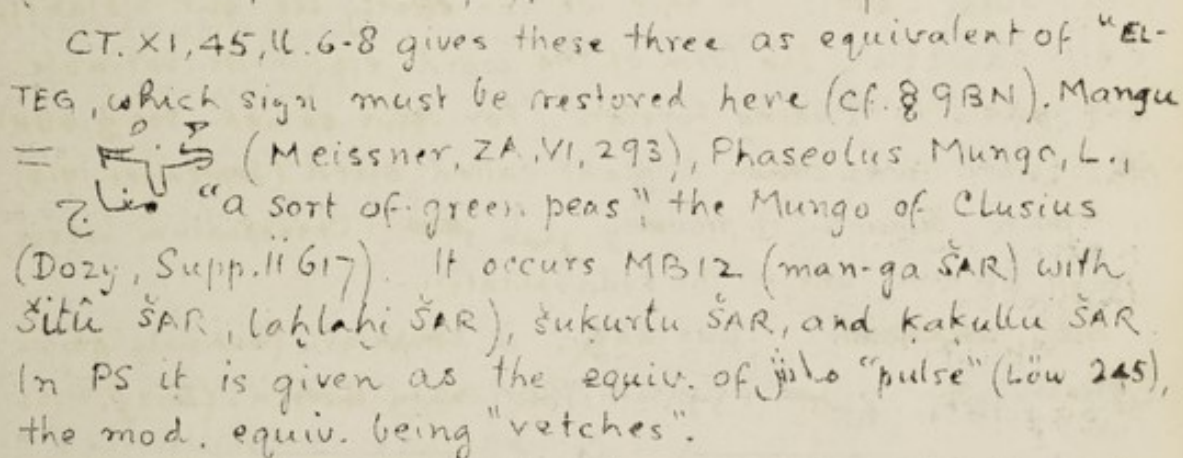 CT. XI, 45, ll. 6-8 gives these three as equivalent of "EL-
TEG, which sign must be restored here (cf. § 9BN). Mangu
= (Meissner, ZA, VI, 293), Phaseolus Mungo, L.,
"a sort of green peas", the Mungo of Clusius
(Dozy, Supp. ii 617). It occurs MB12 (man-ga ŠAR) with
šitû ŠAR, laḫlaḫi ŠAR), šuḳurtu ŠAR, and ḳaḳullu ŠAR
In PS it is given as the equiv. of ماش "pulse" (Löw 245),
the mod. equiv. being "vetches".